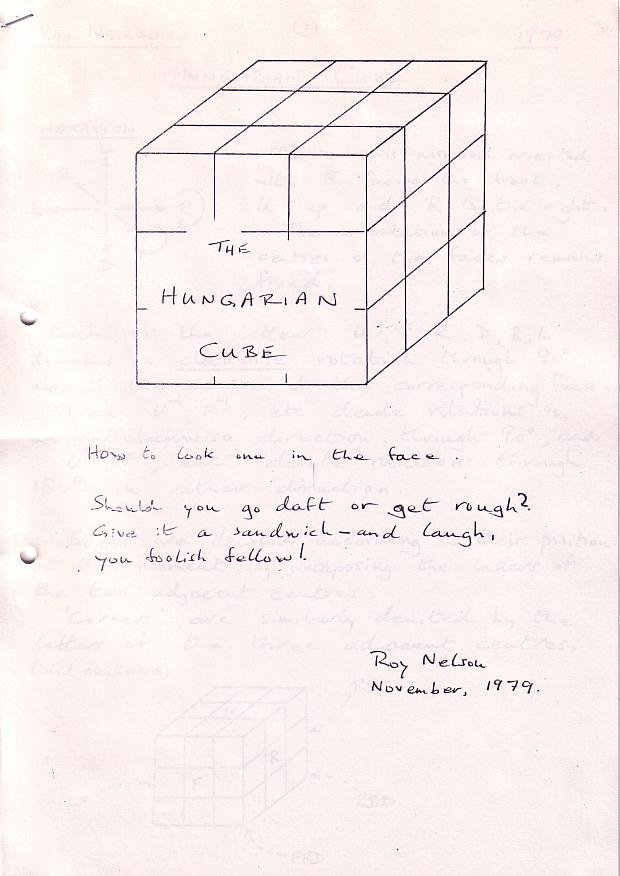 THE
HUNGARIAN
CUBE
How to look one in the face.
Should you go daft or get rough?
Give it a sandwich – and laugh,
you foolish fellow!
Roy Nelson
November, 1979.